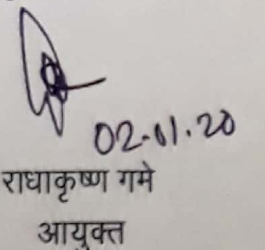 02.01.20
राधाकृष्ण गमे
आयुक्त